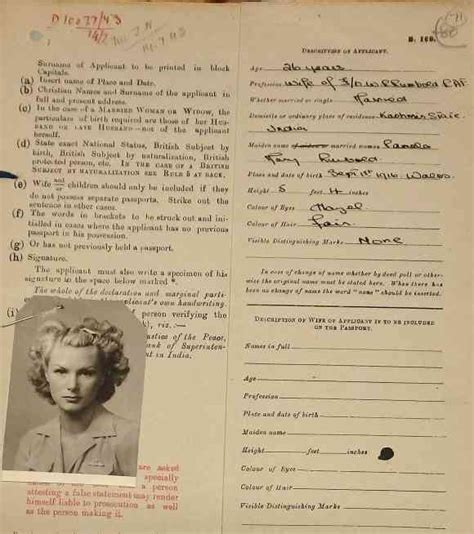 D 10277/43
Surname of Applicant to be printed in block
Capitals.
(a) Insert name of Place and Date.
(b) Christian Names and Surname of the applicant in
full and present address.
(c) In the case of a MARRIED WOMAN OR WIDOW, the
particulars of birth required are those of her HUS-
BAND OR LATE HUSBAND—not of the applicant
herself.
(d) State exact National Status, British Subject by
birth, British Subject by naturalization, British
protected person, etc. IN THE CASE OF A BRITISH
SUBJECT BY NATURALIZATION SEE RULE 5 AT BACK.
(e) Wife and/or children should only be included if they
do not possess separate passports. Strike out the
sentence in other cases.
(f) The words in brackets to be struck out and ini-
tialled in cases where the applicant has no previous
passport in his possession.
(g) Or has not previously held a passport.
(h) Signature.
The applicant must also write a specimen of his
signature in the space below marked *.
The whole of the declaration and marginal parti-
plicant's own handwriting.
(i) person verifying the
), viz.:—
stice of the Peace,
ank of Superinten-
t in India.
are asked
specially
a person
attesting a false statement may render
himself liable to prosecution as well
as the person making it.
DESCRIPTION OF APPLICANT.
Age 26 years
Profession wife of
Whether married or single Married
Domicile or ordinary place of residence Kashmir State
India
Maiden name married women Pamela
Place and date of birth Sept 1st 1916 Wales
Height 5 feet 4 inches
Colour of Eyes Hazel
Colour of Hair Fair
Visible Distinguishing Marks None
In case of change of name whether by deed poll or other-
wise the original name must be stated here. When there has
been no change of name the word "none" should be inserted.
DESCRIPTION OF WIFE OF APPLICANT IF TO BE INCLUDED
ON THE PASSPORT.
Names in full
Age
Profession
Place and date of birth
Maiden name
Height feet inches
Colour of Eyes
Colour of Hair
Visible Distinguishing Marks